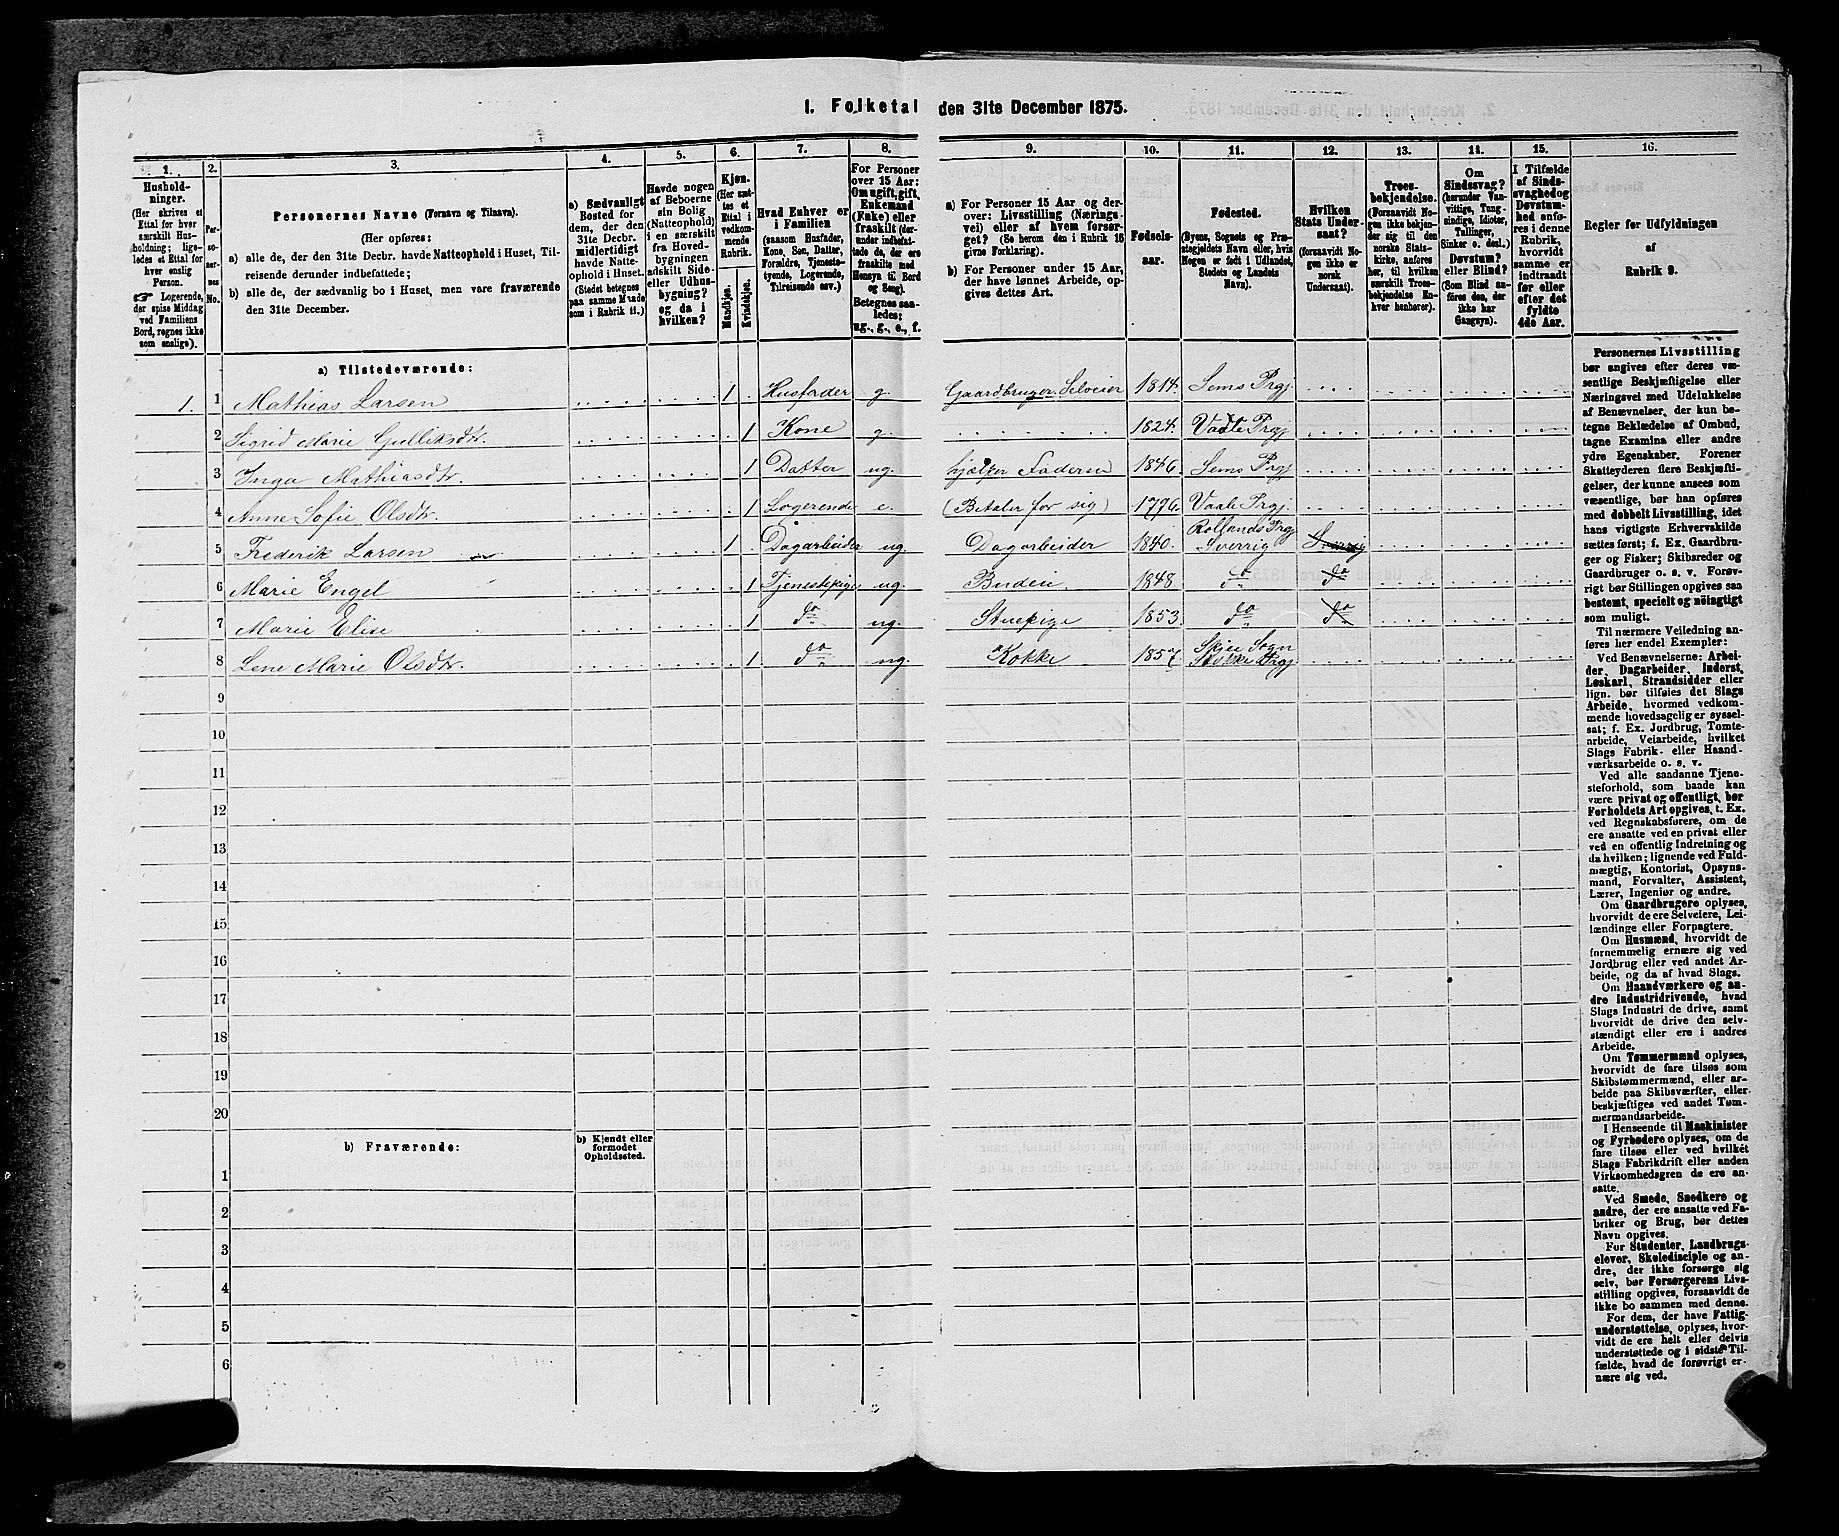 1. Folketal den 31te December 1875.
1.
Hushold-
ninger.
(Her skrives et
Ettal for hver
særskilt Hus-
holdning; lige-
ledes et Ettal for
hver enslig
Person.
☞ Logerende,
der spise Middag
ved Familiens
Bord, regnes ikke
som enslige).
2.
Per-
so-
ner-
nes
No.
3.
Personernes Navne (Fornavn og Tilnavn).
(Her opføres:
a) alle de, der den 31te Decbr. havde Natteophold i Huset, Til-
reisende derunder indbefattede;
b) alle de, der sædvanlig bo i Huset, men vare fraværende
den 31te December.
4.
a) Sædvanligt
Bosted for
dem, der den
31te Decbr.
midlertidigt
havde Natte-
ophold i Huset.
(Stedet betegnes
paa samme Maade
som i Rubrik 11.)
5.
Havde nogen
af Beboerne
sin Bolig
(Natteophold)
i en særskilt
fra Hoved-
bygningen
adskilt Side-
eller Udhus-
bygning?
og da i
hvilken?
6.
Kjøn.
(Her sæt-
tes et
Ettal i
vedkom-
mende
Rubrik.
Mandkjøn.
Kvindekjøn.
7.
Hvad Enhver er
i Familien
(saasom Husfader,
Kone, Søn, Datter,
Forældre, Tjeneste-
tyende, Logerende,
Tilreisende osv.)
8.
For Personer
over 15 Aar:
Om ugift, gift,
Enkemand
(Enke) eller
fraskilt (der-
under indbefat-
tede de, der ere
fraskilte med
Hensyn til Bord
og Seng).
Betegnes saa-
ledes:
ug., g., e., f.
9.
a) For Personer 15 Aar og der-
over: Livsstilling (Nærings-
vei) eller af hvem forsør-
get? (Se herom den i Rubrik 16
givne Forklaring).
b) For Personer under 15 Aar,
der have lønnet Arbeide, op-
gives dettes Art.
10.
Fødsels-
aar.
11.
Fødested.
(Byens, Sognets og Præ-
stegjeldets Navn eller, hvis
Nogen er født i Udlandet,
Stedets og Landets
Navn).
12.
Hvilken
Stats Under-
saat?
(forsaavidt No-
gen ikke er
norsk
Undersaat).
13.
Troes-
bekjendelse.
(Forsaavidt No-
gen ikke bekjen-
der sig til den
norske Stats-
kirke, anføres
her, til hvilken
særskilt Troes-
bekjendelse En-
hver henhører).
14.
Om
Sindssvag?
(herunder Van-
vittige, Tung-
sindige, Idioter,
Tullinger,
Sinker o. desl.)
Døvstum?
eller Blind?
(Som Blind an-
føres den, der
ikke har
Gangsyn).
15.
I Tilfælde
af Sinds-
svaghed og
Døvstum-
hed anfø-
res i denne
Rubrik,
hvorvidt
samme er
indtraadt
før eller
efter det
fyldte
4de Aar.
16.
Regler for Udfyldningen
af
Rubrik 9.
a) Tilstedeværende:
1. 1 Mathias Larsen 1 Husfader g. Gaardbruger Selveier 1814. Sems Prgj.
2 Sigrid Marie Gulliksdtr. 1 Kone g. 1824. Vaale Prgj
3 Inga Mathiasdtr. 1 Datter ug. hjælper Faderen 1846. Sems Prgj
4 Anne Sofie Olsdtr. 1 Logerende e. (Betaler for sig) 1796. Vaale Prgj.
5 Frederik Larsen 1 Dagarbeider ug. Dagarbeider 1840. Rollands Prgj Sverrig Sverrig
6 Marie Engel 1 Tjenestepige ug. Budeie 1848. do do
7 Marie Elise 1 do ug. Stuepige 1853. do do
8 Lene Marie Olsdtr. 1 do ug. Kokke Sogn Prgj.
9
10
11
12
13
14
15
16
17
18
19
20
b) Fraværende:
b) Kjendt eller
formodet
Opholdssted.
1
2
3
4
5
6
Personernes Livsstilling
bør angives efter deres væ-
sentlige Beskjæftigelse eller
Næringsvei med Udelukkelse
af Benævnelser, der kun be-
tegne Beklædelse af Ombud,
tagne Examina eller andre
ydre Egenskaber. Forener
Skatteyderen flere Beskjæfti-
gelser, der kunne ansees som
væsentlige, bør han opføres
med dobbelt Livsstilling, idet
hans vigtigste Erhvervskilde
sættes først; f. Ex. Gaardbru-
ger og Fisker; Skibsreder og
Gaardbruger o. s. v. Forøv-
rigt bør Stillingen opgives saa
bestemt, specielt og nøiagtigt
som muligt.
Til nærmere Veiledning an-
føres her endel Exempler:
Ved Benævnelserne: Arbei-
der, Dagarbeider, Inderst,
Løskarl, Strandsidder eller
lign. bør tilføies det Slags
Arbeide, hvormed vedkom-
mende hovedsagelig er syssel-
sat; f. Ex. Jordbrug, Tomte-
arbeide, Veiarbeide, hvilket
Slags Fabrik- eller Haand-
værksarbeide o. s. v.
Ved alle saadanne Tjene-
steforhold, som baade kan
være privat og offentligt, bør
Forholdets Art opgives, t. Ex.
ved Regnskabsførere, om de
ere ansatte ved en privat eller
ved en offentlig Indretning og
da hvilken; lignende ved Fuld-
mægtig, Kontorist, Opsyns-
mand, Forvalter, Assistent,
Lærer, Ingeniør og andre.
Om Gaardbrugere oplyses,
hvorvidt de ere Selveiere, Lei-
lændinge eller Forpagtere.
Om Husmænd, hvorvidt de
fornemmelig ernære sig ved
Jordbrug eller ved andet Ar-
beide, og da af hvad Slags.
Om Haandværkere og an-
dre Industridrivende, hvad
Slags Industri de drive, samt
hvorvidt de drive den selv-
stændigt eller ere i andres
Arbeide.
Om Tømmermænd oplyses,
hvorvidt de fare tilsøs som
Skibstømmermænd, eller ar-
beide paa Skibsværfter, eller
beskjæftiges ved andet Tøm-
mermandsarbeide.
I Henseende til Maskinister
og Fyrbødere oplyses, om de
fare tilsøs eller ved hvilket
Slags Fabrikdrift eller anden
Virksomhedsgren de ere an-
satte.
Ved Smede, Snedkere og
andre, der ere ansatte ved Fa-
briker og Brug, bør dettes
Navn opgives.
For Studenter, Landbrugs-
elever, Skoledisciple og an-
dre, der ikke forsørge sig
selv, bør Forsørgerens Livs-
stilling opgives, forsaavidt de
ikke bo sammen med denne.
For dem, der have Fattig-
understøttelse, oplyses, hvor-
vidt de ere helt eller delvis
understøttede og i sidste Til-
fælde, hvad de forøvrigt er-
nære sig ved.